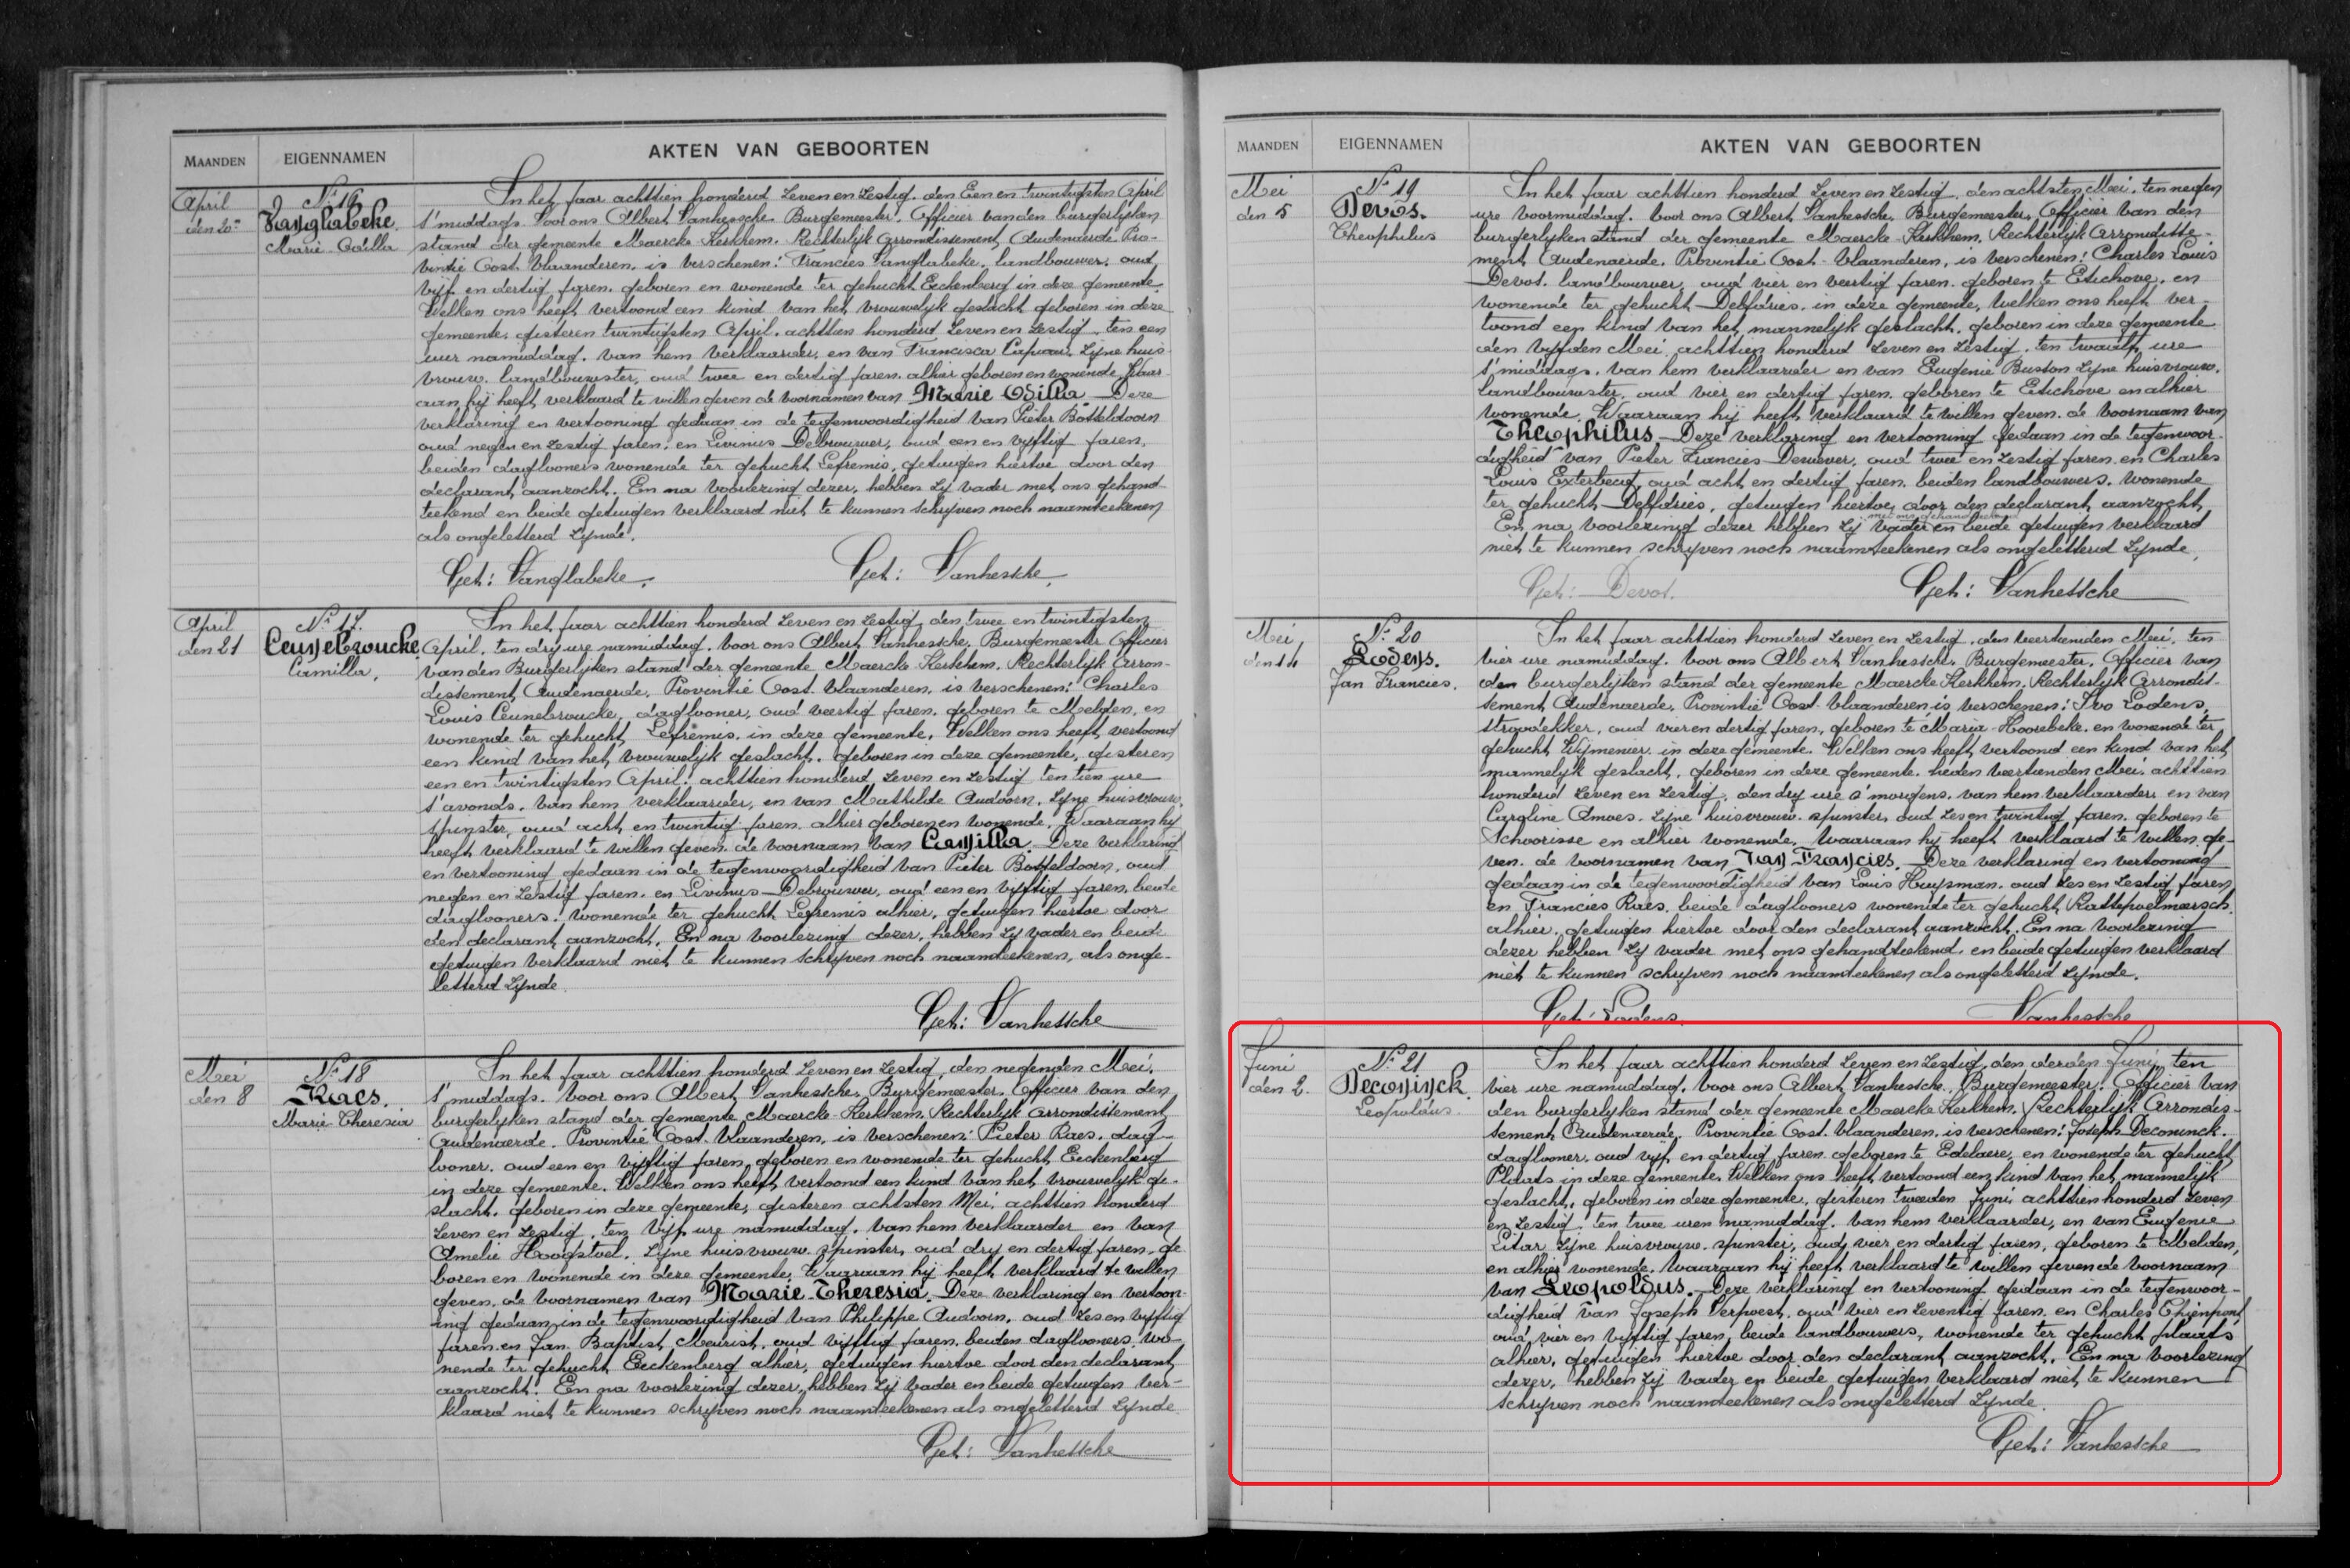 MAANDEN EIGENNAMEN AKTEN VAN GEBOORTEN
April
den 20
N° 16
Vanglabeke.
Marie Odilla
In het jaar achttien honderd zeven en zestig, den Een en twintigsten April
s'middags. Voor ons Albert Vanhessche. Burgemeester. Officier van den burgerlijken
stand der gemeente Maercke-Kerkhem. Rechterlijk Arrondissement Audenaerde Pro-
vintie Oost-Vlaanderen, is verschenen: Francies Vanglabeke, landbouwer, oud
vijf en dertig jaren, geboren en wonende ter gehucht Eeckenberg in deze gemeente
Welken ons heeft vertoond een kind van het vrouwelijk geslacht geboren in deze
gemeente, gisteren twintigsten April, achttien honderd zeven en zestig ten een
uur namiddag, van hem verklaarder, en van Francisca Capiau, zijne huis-
vrouw, landbouwster, oud twee en dertig jaren, alhier geboren en wonende, Waar-
aan hij heeft verklaard te willen geven de voornamen van Marie Odilla. Deze
verklaring en vertooning gedaan in de tegenwoordigheid van Pieter Botteldoorn
oud negen en zestig jaren, en Livinus Debrouwer, oud een en vijftig jaren,
beiden daglooners wonende ter gehucht Lefremis, getuigen hiertoe door den
declarant aanzocht. En na voorlezing dezer, hebben zij vader met ons gehand-
teekend en beide getuigen verklaard niet te kunnen schrijven noch naamteekenen
als ongeletterd zijnde.
Get: Vanglabeke. Get: Vanhessche.
April
den 21
N° 17.
Ceunebroucke
Camilla,
In het jaar achttien honderd zeven en zestig, den twee en twintigsten
April, ten dry ure namiddag. Voor ons Albert Vanhessche. Burgemeester Officier
van den Burgerlijken stand der gemeente Maercke-Kerkhem, Rechterlijk Arron-
dissement Audenaerde, Provintie Oost-Vlaanderen, is verschenen: Charles
Louis Ceunebroucke, daglooner, oud veertig jaren, geboren te Melden, en
wonende ter gehucht Lefremis, in deze gemeente, Welken ons heeft vertoond
een kind van het vrouwelijk geslacht, geboren in deze gemeente, gisteren
een en twintigsten April, achttien honderd zeven en zestig ten tien ure
s'avonds, van hem verklaarder, en van Mathilde Audoorn, zijne huisvrouw,
spinster, oud acht en twintig jaren, alhier geboren en wonende, Waaraan hij
heeft verklaard te willen geven de voornaam van Camilla. Deze verklaring
en vertooning gedaan in de tegenwoordigheid van Pieter Botteldoorn, oud
negen en zestig jaren, en Livinus Debrouwer, oud een en vijftig jaren, beide
daglooners, wonende ter gehucht Lefremis alhier, getuigen hiertoe door
den declarant aanzocht. En na voorlezing dezer, hebben zij vader en beide
getuigen verklaard niet te kunnen schrijven noch naamteekenen, als onge-
letterd zijnde.
Get: Vanhessche
Mei
den 8
N° 18
Raes.
Marie Theresia
In het jaar achttien honderd zeven en zestig, den negenden Mei,
s'middags. Voor ons Albert Vanhessche, Burgemeester. Officier van den
burgerlijken stand der gemeente Maercke-Kerkhem, Rechterlijk Arrondissement
Audenaerde, Provintie Oost-Vlaanderen, is verschenen: Pieter Raes, dag-
looner, oud een en vijftig jaren geboren en wonende ter gehucht Eeckenberg
in deze gemeente. Welken ons heeft vertoond een kind van het vrouwelijk ge-
slacht, geboren in deze gemeente, gisteren achtsten Mei, achttien honderd
zeven en zestig, ten vijf ure namiddag, van hem verklaarder en van
Amelie Hoogstoel, zijne huisvrouw, spinster, oud dry en dertig jaren, ge-
boren en wonende in deze gemeente, Waaraan hij heeft verklaard te willen
geven, de voornamen van Marie-Theresia. Deze verklaring en vertoon-
ing gedaan in de tegenwoordigheid van Philippe Audoorn, oud zes en vijftig
jaren en Jan Baptist Meurist, oud vijftig jaren, beiden daglooners, wo-
nende ter gehucht Eeckenberg alhier, getuigen hiertoe door den declarant
aanzocht. En na voorlezing dezer, hebben zij vader en beide getuigen ver-
klaard niet te kunnen schrijven noch naamteekenen als ongeletterd zijnde
Get: Vanhessche
MAANDEN EIGENNAMEN AKTEN VAN GEBOORTEN
Mei
den 5
N° 19
Devos.
Theophilus
In het jaar achttien honderd zeven en zestig, den achtsten Mei, ten negen
ure voormiddag. Voor ons Albert Vanhessche, Burgemeester, Officier van den
burgerlijken stand der gemeente Maercke-Kerkhem, Rechterlijk Arrondisse-
ment Audenaerde, Provintie Oost-Vlaanderen, is verschenen: Charles Louis
Devos, landbouwer, oud vier en veertig jaren, geboren te Etichove, en
wonende ter gehucht Delfdries, in deze gemeente, Welken ons heeft ver-
toond een kind van het mannelijk geslacht, geboren in deze gemeente
den vijfden Mei, achttien honderd zeven en zestig, ten twaalf ure
s'middags, van hem verklaarder en van Eugenie Buston zijne huisvrouw,
landbouwster, oud vier en dertig jaren, geboren te Etichove en alhier
wonende, Waaraan hij heeft verklaard te willen geven, de voornaam van
Theophilus. Deze verklaring en vertooning gedaan in de tegenwoor-
digheid van Pieter Francies Deriever, oud twee en zestig jaren, en Charles
Louis Exterbecq, oud acht en dertig jaren, beiden landbouwers, wonende
ter gehucht Delfdries, getuigen hiertoe door den declarant aanzocht,
met ons gehandteekend
En na voorlezing dezer hebben zij vader en beide getuigen verklaard
niet te kunnen schrijven noch naamteekenen als ongeletterd zijnde.
Get: Devos. Get: Vanhessche
Mei
den 14
N° 20
Lodens.
Jan Francies.
In het jaar achttien honderd zeven en zestig, den veertienden Mei, ten
vier ure namiddag. Voor ons Albert Vanhessche, Burgemeester, Officier van
den burgerlijken stand der gemeente Maercke-Kerkhem, Rechterlijk Arrondis-
sement Audenaerde, Provintie Oost-Vlaanderen is verschenen: Ivo Lodens,
stroodekker, oud vier en dertig jaren, geboren te Maria-Hoorebeke, en wonende ter
gehucht Wijmenier, in deze gemeente. Welken ons heeft vertoond een kind van het
mannelijk geslacht, geboren in deze gemeente, heden veertienden Mei, achttien
honderd zeven en zestig, den dry ure s'morgens, van hem verklaarder, en van
Caroline Amoes, zijne huisvrouw, spinster, oud zes en twintig jaren, geboren te
Schoorisse en alhier wonende, waaraan hij heeft verklaard te willen ge-
ven, de voornamen van Jan Francies. Deze verklaring en vertooning
gedaan in de tegenwoordigheid van Louis Huysman, oud zes en zestig jaren
en Francies Raes, beide daglooners wonende ter gehucht Kattepoelmeersch
alhier, getuigen hiertoe door den declarant aanzocht. En na voorlezing
dezer hebben zij vader met ons gehandteekend en beide getuigen verklaard
niet te kunnen schrijven noch naamteekenen als ongeletterd zijnde.
Get: Lodens. Vanhessche
Juni
den 2.
N° 21
Deconinck.
Leopoldus.
In het jaar achttien honderd zeven en zestig, den derden Juni, ten
vier ure namiddag. Voor ons Albert Vanhessche. Burgemeester. Officier van
den burgerlijken stand der gemeente Maercke-Kerkhem, Rechterlijk Arrondis-
sement Audenaerde, Provintie Oost-Vlaanderen, is verschenen: Joseph Deconinck.
daglooner, oud vijf en dertig jaren, geboren te Edelaere, en wonende ter gehucht
Plaats in deze gemeente, Welken ons heeft vertoond een kind van het mannelijk
geslacht, geboren in deze gemeente, gisteren tweeden Juni, achttien honderd zeven
en zestig, ten twee uren namiddag, van hem verklaarder, en van Eugenie
Litar zijne huisvrouw, spinster, oud vier en dertig jaren, geboren te Melden,
en alhier wonende, waaraan hij heeft verklaard te willen geven de voornaam
van Leopoldus. Deze verklaring en vertooning gedaan in de tegenwoor-
digheid van Joseph Verpoest, oud vier en zeventig jaren, en Charles Thienpont,
oud vier en vijftig jaren, beide landbouwers, wonende ter gehucht plaats
alhier, getuigen hiertoe door den declarant aanzocht. En na voorlezing
dezer, hebben zij vader en beide getuigen verklaard niet te kunnen
schrijven noch naamteekenen als ongeletterd zijnde.
Get: Vanhessche